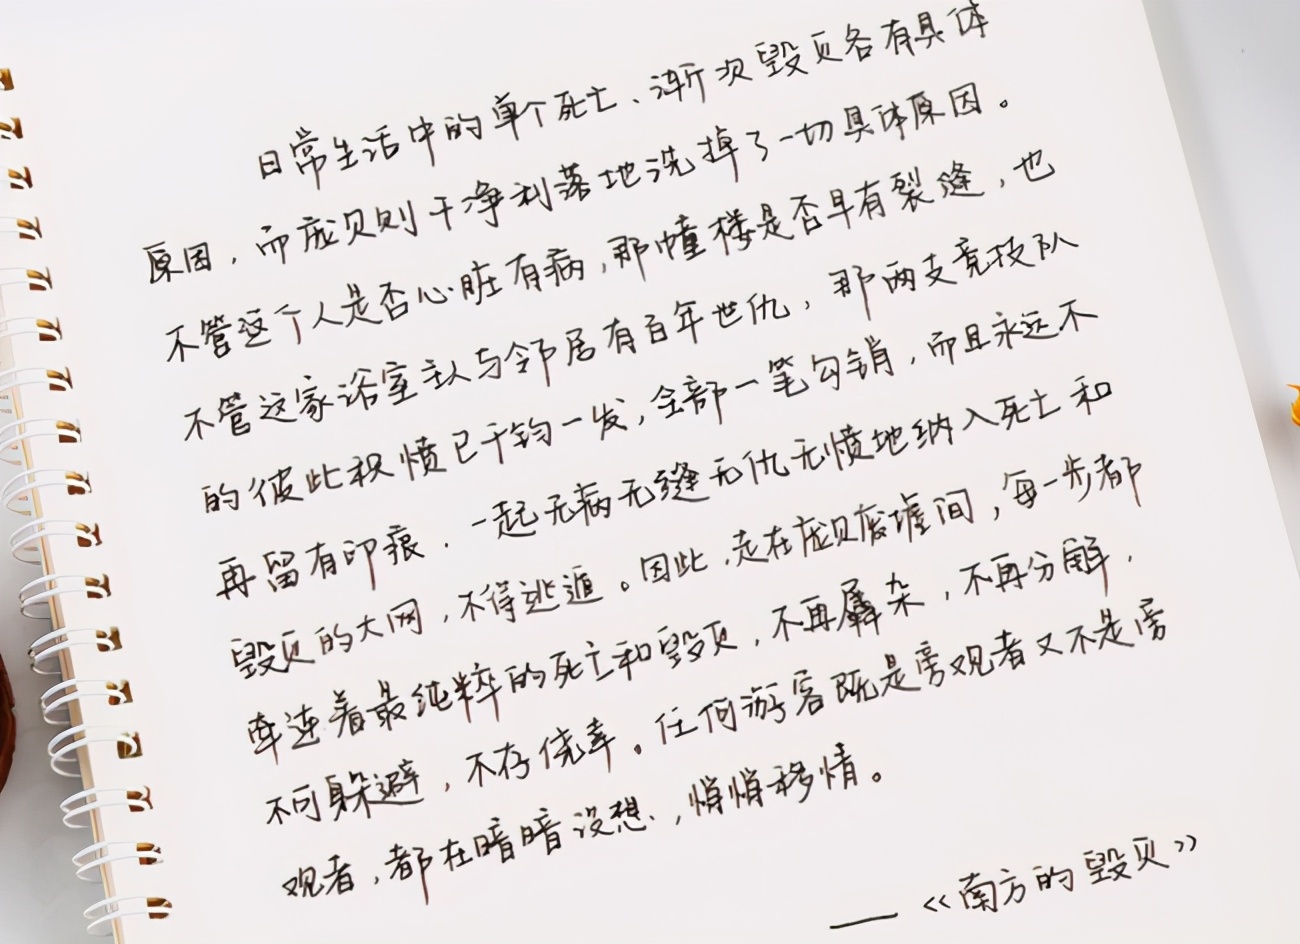 日常生活中的单个死亡、渐次毁灭各有具体
原因，而庞贝则干净利落地洗掉了一切具体原因。
不管这个人是否心脏有病，那幢楼是否早有裂缝，也
不管这家浴室主人与邻居有百年世仇，那两支竞技队
的彼此积愤已千钧一发，全部一笔勾销，而且永远不
再留有印痕．一起无病无缝无仇无愤地纳入死亡和
毁灭的大网，不得逃遁。因此，走在庞贝废墟间，每一步都
牵连着最纯粹的死亡和毁灭，不再羼杂，不再分解．
不可躲避，不存侥幸。任何游客既是旁观者又不是旁
观者，都在暗暗设想．，悄悄移情。
——《南方的毁灭》